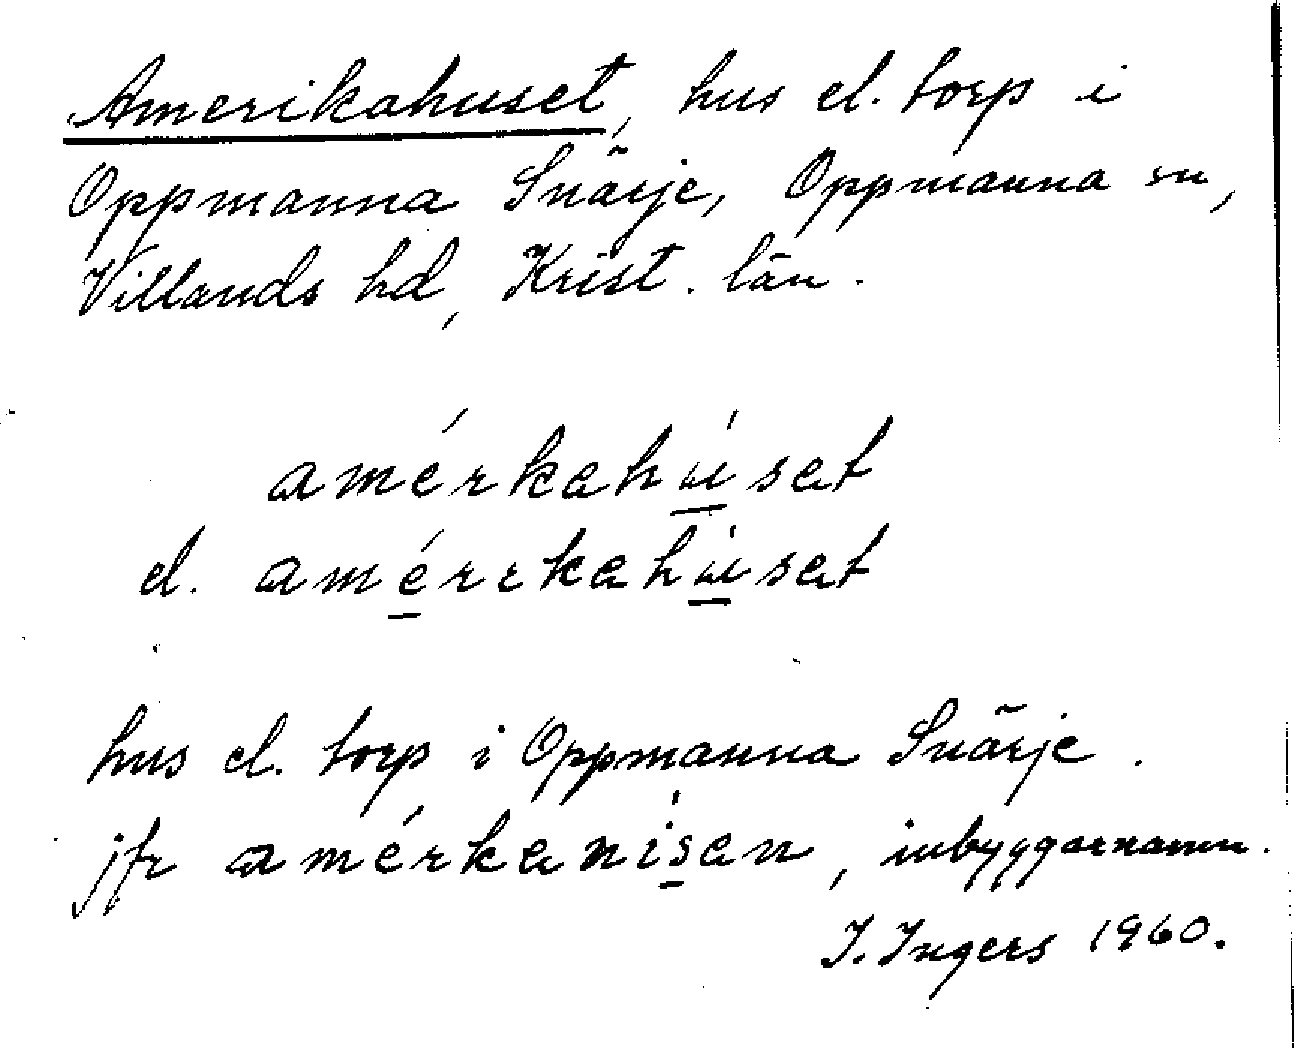 Amerikahuset, hus el. torp i
Oppmanna Snärje, Oppmanna sn,
Villands hd, Krist. län.
amérkahúsat
el. amérrkahúsat
hus el. torp i Oppmanna Snärje.
jfr amérkanisan, inbyggarnamn.
I. Ingers 1960.